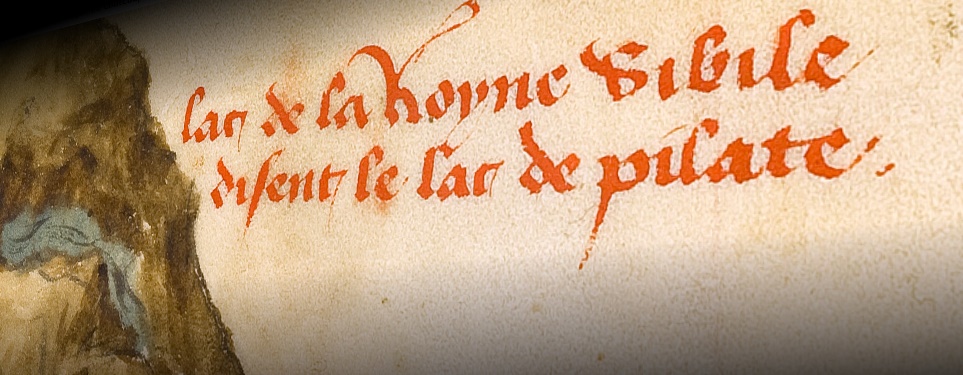 lac de la Royne Sibile
disent le lac de pilate.